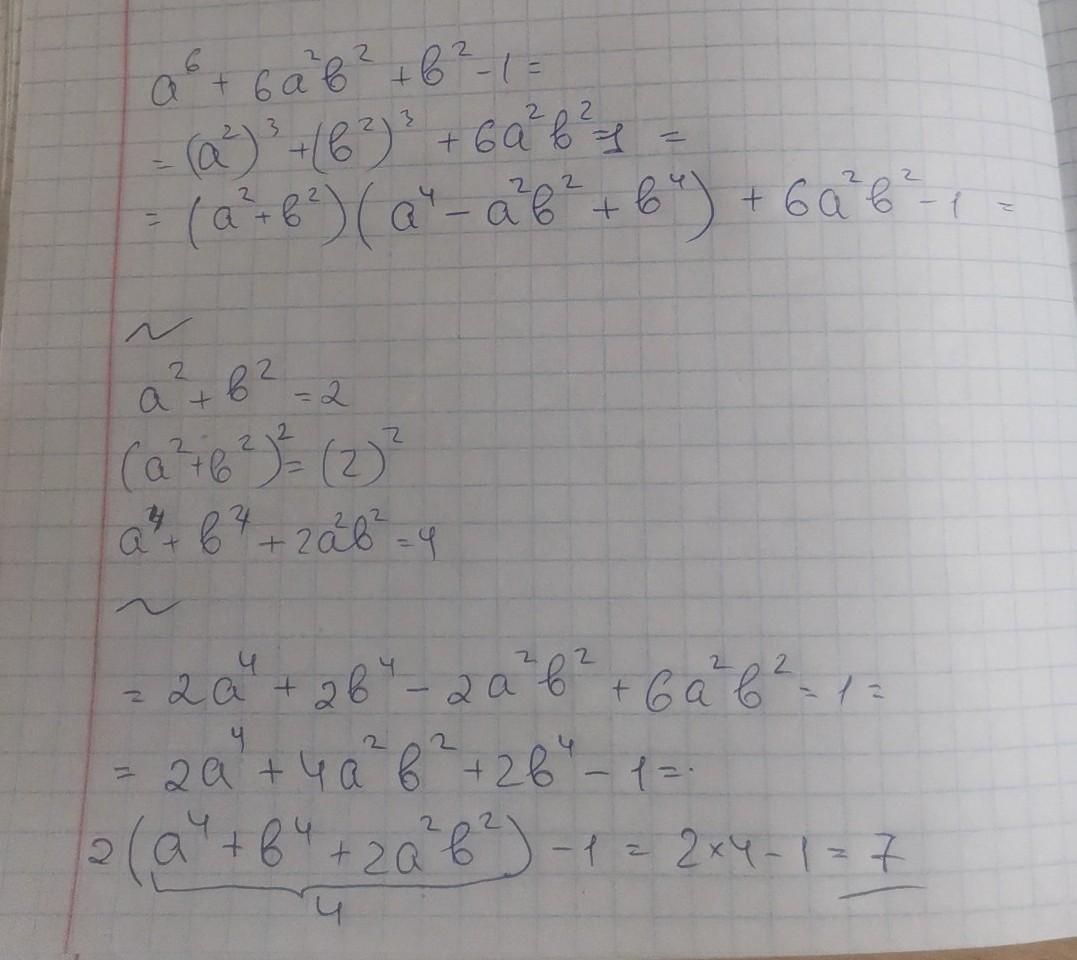 a⁶ + 6a²b² + b² - 1 =
= (a²)³ + (b²)³ + 6a²b² - 1 =
= (a² + b²)(a⁴ - a²b² + b⁴) + 6a²b² - 1 =
~
a² + b² = 2
(a² + b²)² = (2)²
a⁴ + b⁴ + 2a²b² = 4
~
= 2a⁴ + 2b⁴ - 2a²b² + 6a²b² - 1 =
= 2a⁴ + 4a²b² + 2b⁴ - 1 =
2(a⁴ + b⁴ + 2a²b²) - 1 = 2×4 - 1 = 7
4